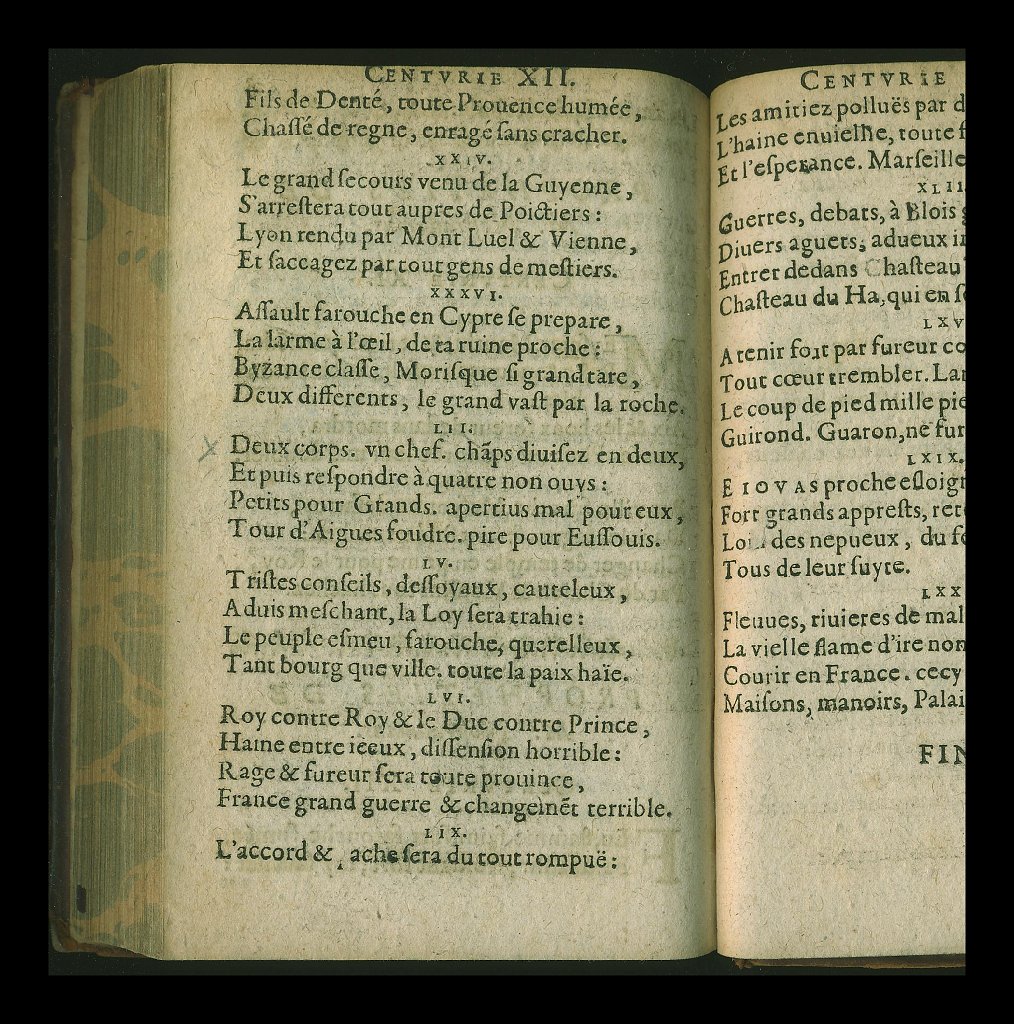 CENTVRIE XII.
Fils de Denté, toute Prouence humée,
Chaſſé de regne, enragé ſans cracher.
XXIV.
Le grand ſecours venu de la Guyenne,
S'arreſtera tout aupres de Poictiers :
Lyon rendu par Mont Luel & Vienne,
Et ſaccagez par tout gens de meſtiers.
XXXVI.
Aſſault farouche en Cypre ſe prepare,
La larme à l'œil, de ta ruine proche :
Byzance claſſe, Moriſque ſi grand tare,
Deux differents, le grand vaſt par la roche.
LII.
Deux corps. vn chef. chãps diuiſez en deux,
Et puis reſpondre à quatre non ouys :
Petits pour Grands. apertius mal pour eux,
Tour d'Aigues foudre. pire pour Euſſouis.
LV.
Triſtes conſeils, deſſoyaux, cauteleux,
Aduis meſchant, la Loy ſera trahie :
Le peuple eſmeu, farouche, querelleux,
Tant bourg que ville. toute la paix haïe.
LVI.
Roy contre Roy & le Duc contre Prince,
Haine entre iceux, diſſenſion horrible :
Rage & fureur ſera toute prouince,
France grand guerre & changemẽt terrible.
LIX.
L'accord & ache ſera du tout rompuë :
CENTVRIE
Les amitiez polluës par d
L'haine enuieillie, toute f
Et l'eſperance. Marſeille
XLII
Guerres, debats, à Blois g
Diuers aguets, adueux in
Entrer dedans Chaſteau
Chaſteau du Ha, qui en ſe
LXV
A tenir fort par fureur co
Tout cœur trembler. Lan
Le coup de pied mille pie
Guirond. Guaron, ne fur
LXIX.
EIOVAS proche eſloign
Fort grands appreſts, ret
des nepueux, du fe
Tous de leur ſuyte.
LXX
Fleuues, riuieres de mal
La vielle flame d'ire non
Courir en France. cecy
Maiſons, manoirs, Palai
FIN